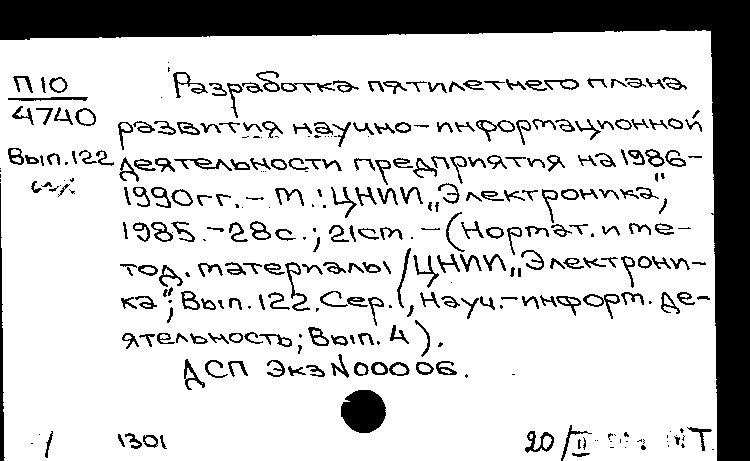 П10
4740
Вып.122
Разработка пятилетнего плана
развития научно-информационной
деятельности предприятия на 1986-
1990гг. - М.: ЦНИИ „Электроника",
1985. - 28с.; 21см. - (Нормат. и ме-
тод. материалы / ЦНИИ „Электрони-
ка"; Вып. 122. Сер., Науч.-информ. де-
ятельность; Вып. 4).
ДСП Экз N00006.
1301
20/II